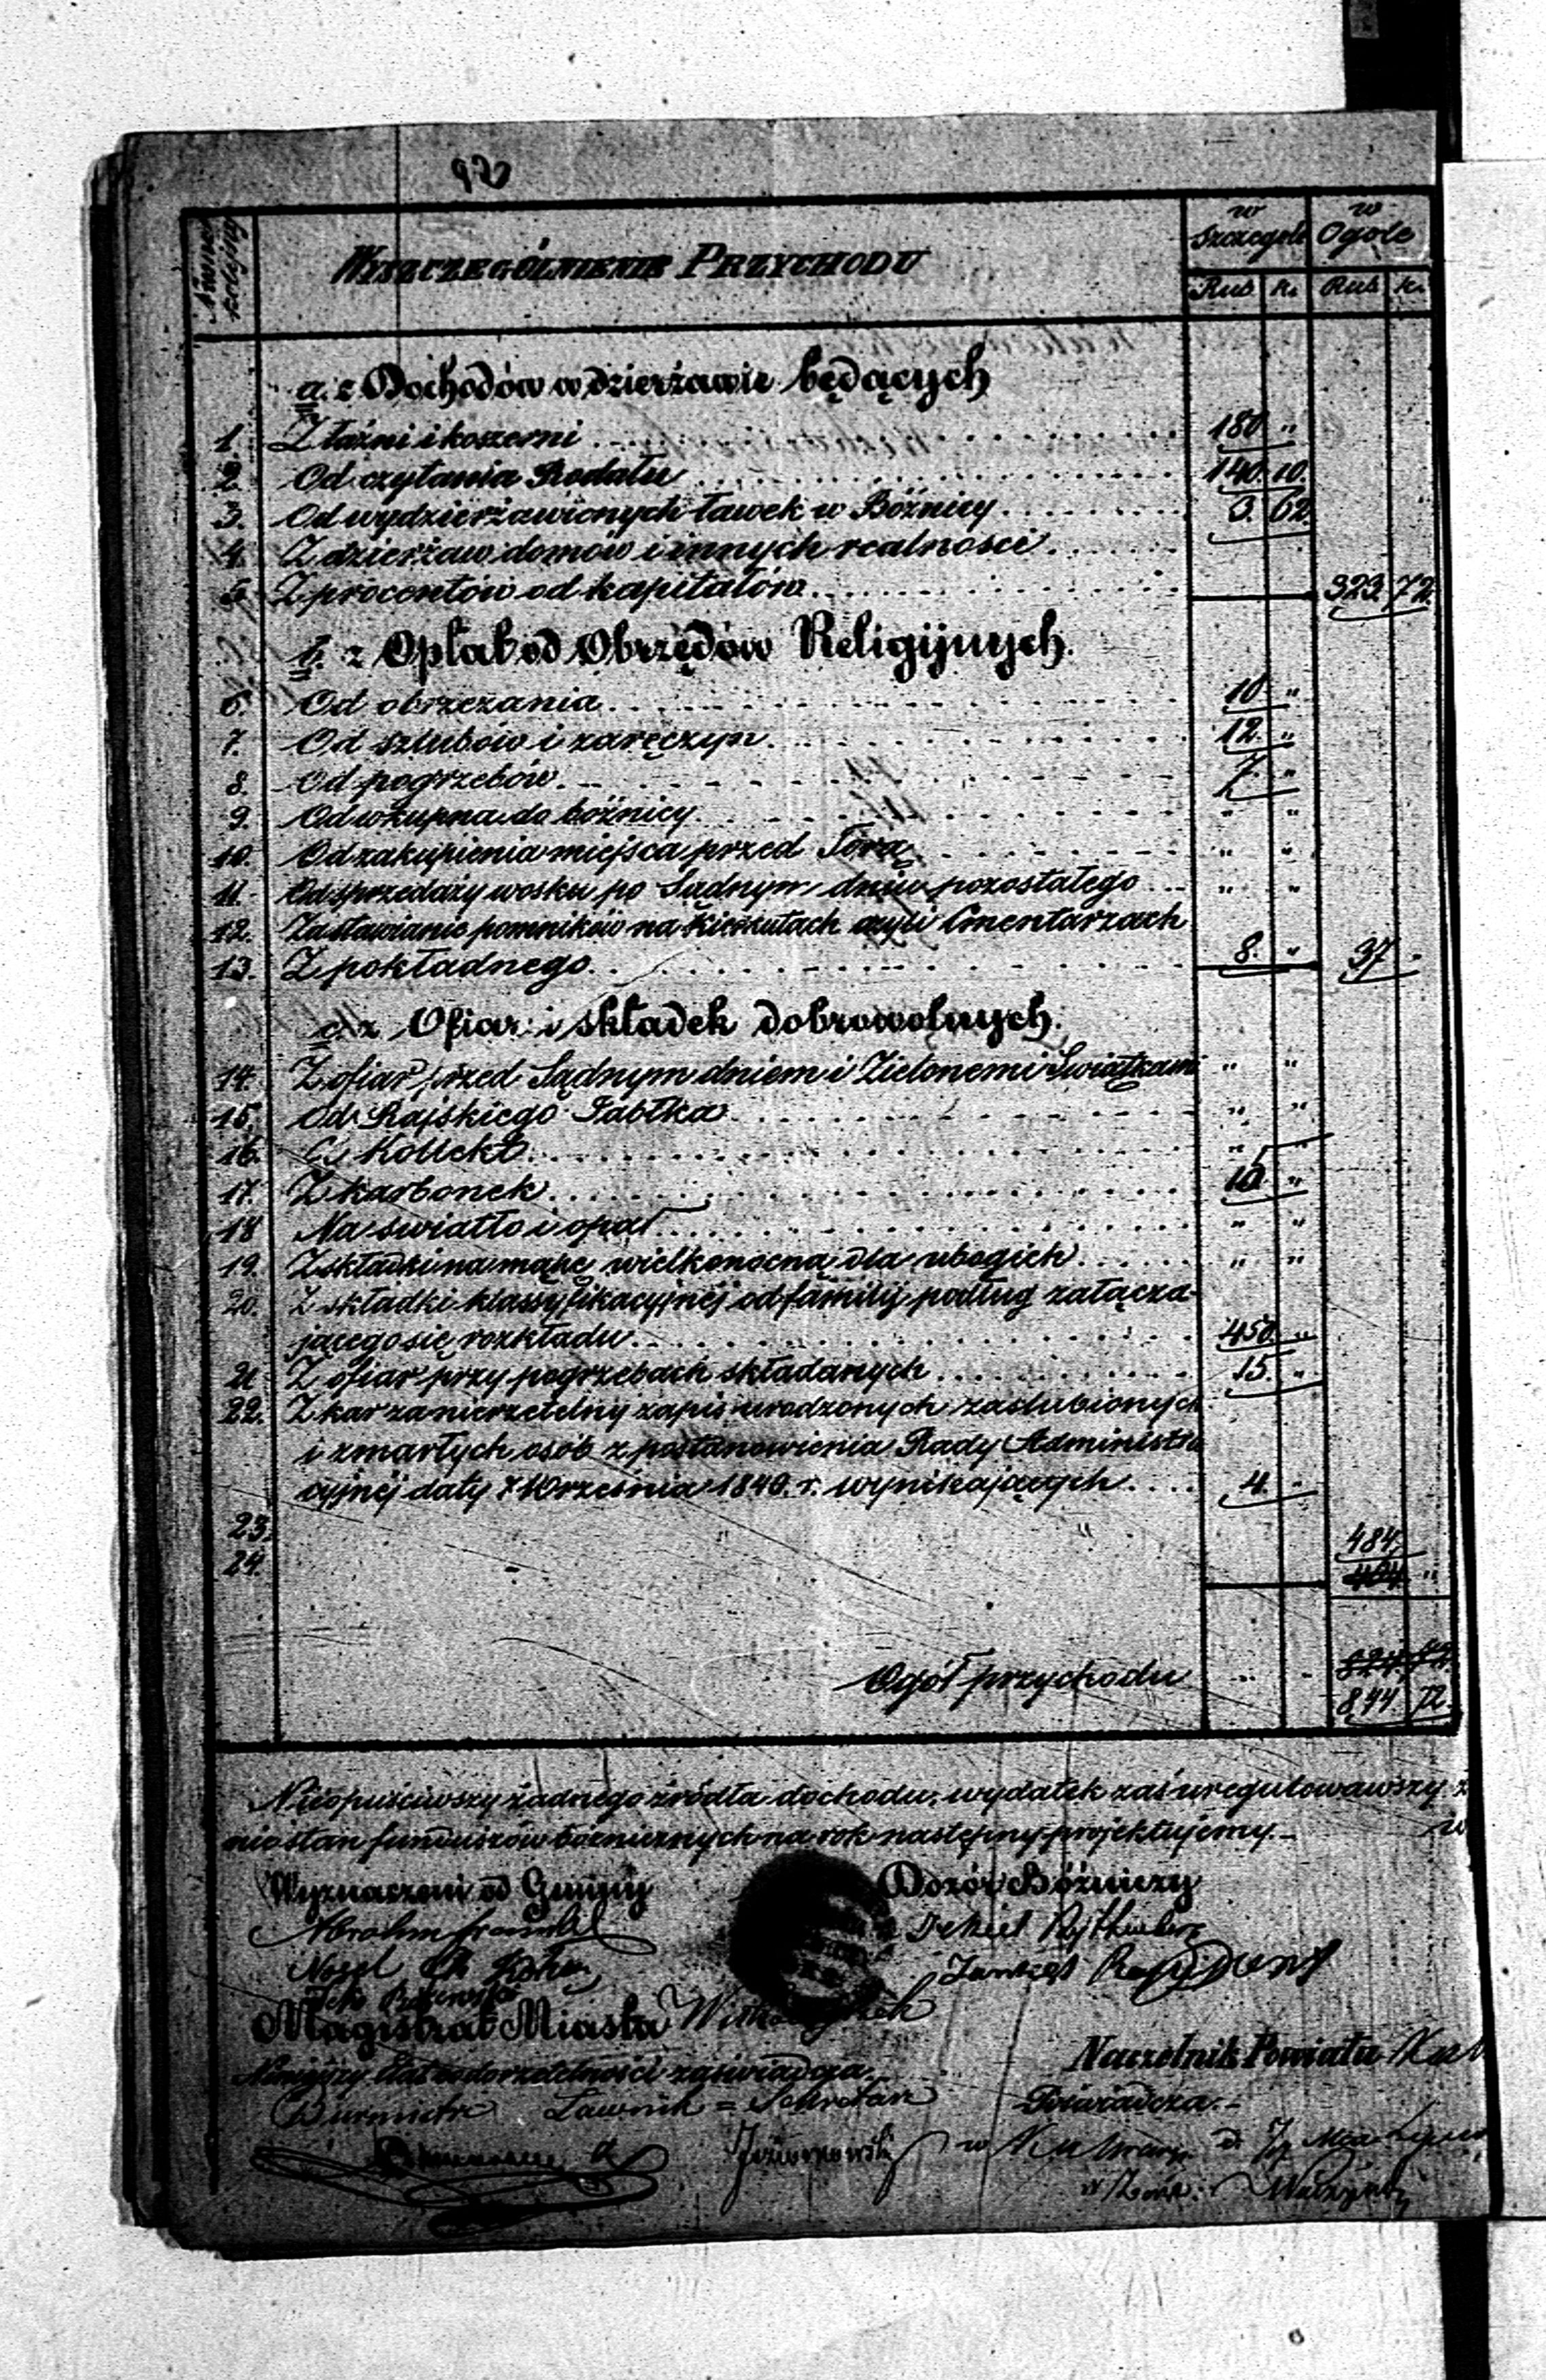 Numer kolejny
WYSZCZEGÓLNIENIE PRZYCHODU
w Szczególe
w Ogóle
Rub k. Rub k.
a. z Dochodów w dzierżawie będących
1. Z łaźni i koszerni 180 "
2. Od czytania Rodału 140. 10.
3. Od wydzierżawionych ławek w Bóżnicy 3. 62.
4. Z dzierżaw domów i innych realnosci
5. Z procentów od kapitałów 323. 72.
b. z Opłat od Obrzędów Religijnych.
6. Od obrzezania 10 "
7. Od szlubów i zaręczyn 12. "
8. Od pogrzebów 7. "
9. Od wkupna do bóżnicy " "
10. Od zakupienia miejsca przed Torą " "
11. Od sprzedaży wosku po Sądnym dniu pozostałego " "
12. Za stawianie pomników na Kierkutach czyli Cmentarzach
13. Z pokładnego 8. " 37 "
c. z Ofiar i składek dobrowolnych.
14. Z ofiar przed Sądnym dniem i Zielonemi Swiątkami " "
15. Od Rajskiego Jabłka " "
16. Kollekt "
17. Z karbonek "
18 Na swiatło i opał " "
19. Z składki na mąkę wielkonocną dla ubogich " "
20. Z składki klassyfikacyjnéj od familij podług załącza-
jącego się rozkładu 450. "
21 Z ofiar przy pogrzebach składanych 15. "
22. Z kar za nierzetelny zapis urodzonych zaslubionych
i zmarłych osób z postanowienia Rady Administra
cyjnéj daty 7 Września 1840. r. wynikających 4. "
23. 484.
24. "
Ogół przychodu
844. 72.
Nieopuściwszy żadnego źródła dochodu, wydatek zaś uregulowawszy
stan funduszów bóżnicznych na rok następny projektujemy.
Wyznaczeni od Gminy
Dozór Bóżniczy
Magistrat Miasta
Naczelnik Powiatu
Niniejszy Etat co do rzetelności zaświadcza.
Poświadcza.
Burmistrz Ławnik = Sekretarz